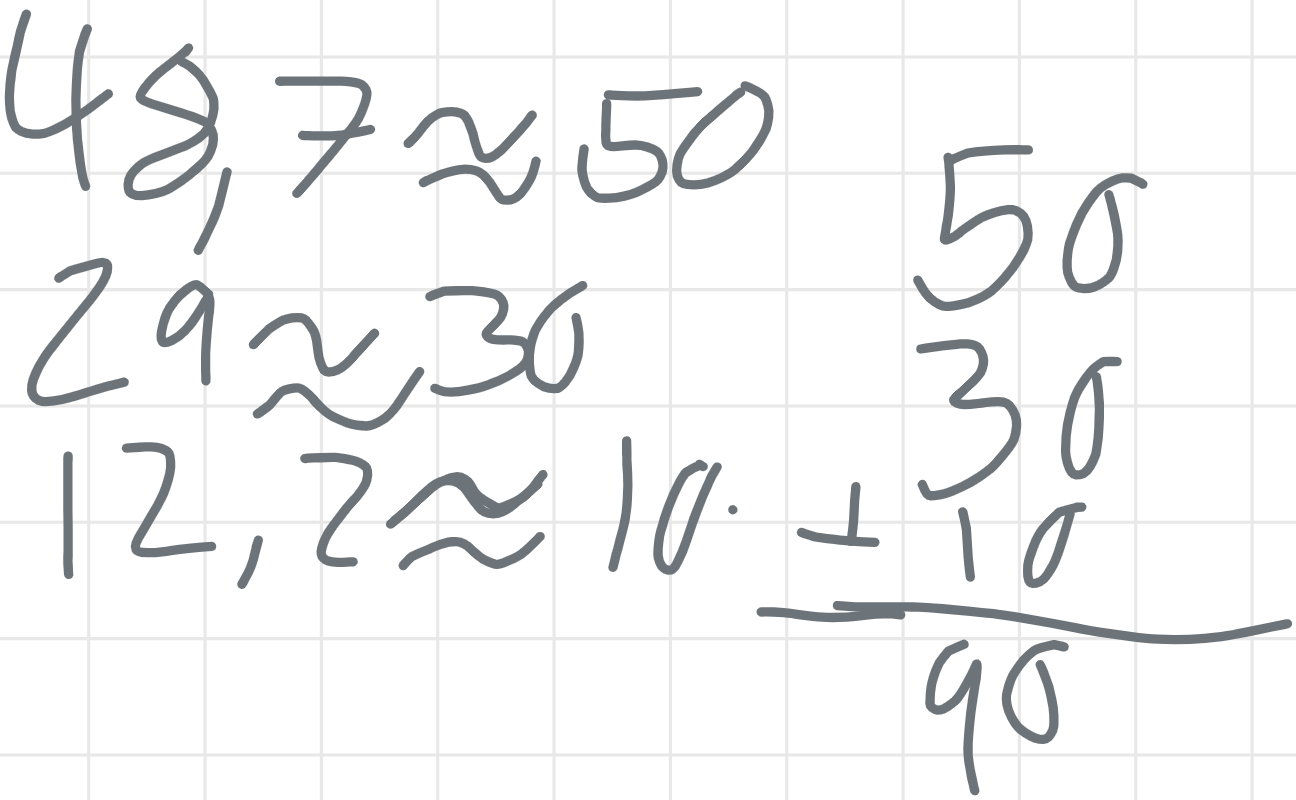 48,7 ≈ 50
29 ≈ 30
12,2 ≈ 10.
50
30
+ 10
90